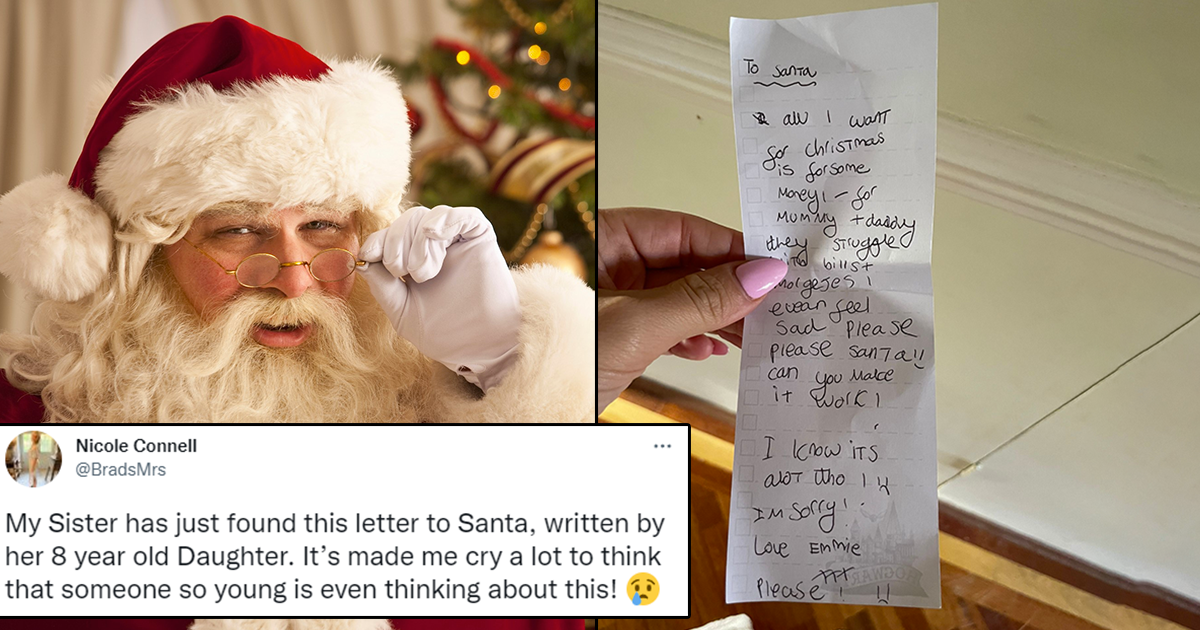 To Santa
all I want
for christmas
is forsome
Money! - for
MUMMY + daddy
they struggle
with bills +
morgeses I
evean feel
sad Please
please Santa!!
can you Make
it work!
I know its
alot tho !
I'm Sorry!
Love Emmie
Please! !!
HOGWAR
Nicole Connell
@BradsMrs
My Sister has just found this letter to Santa, written by
her 8 year old Daughter. It’s made me cry a lot to think
that someone so young is even thinking about this! 😢